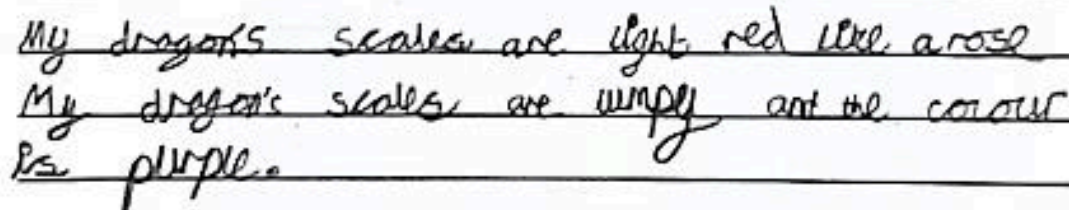 My dragon's scales are light red like a rose
My dragon's scales are lumpy and the colour
is plurple.